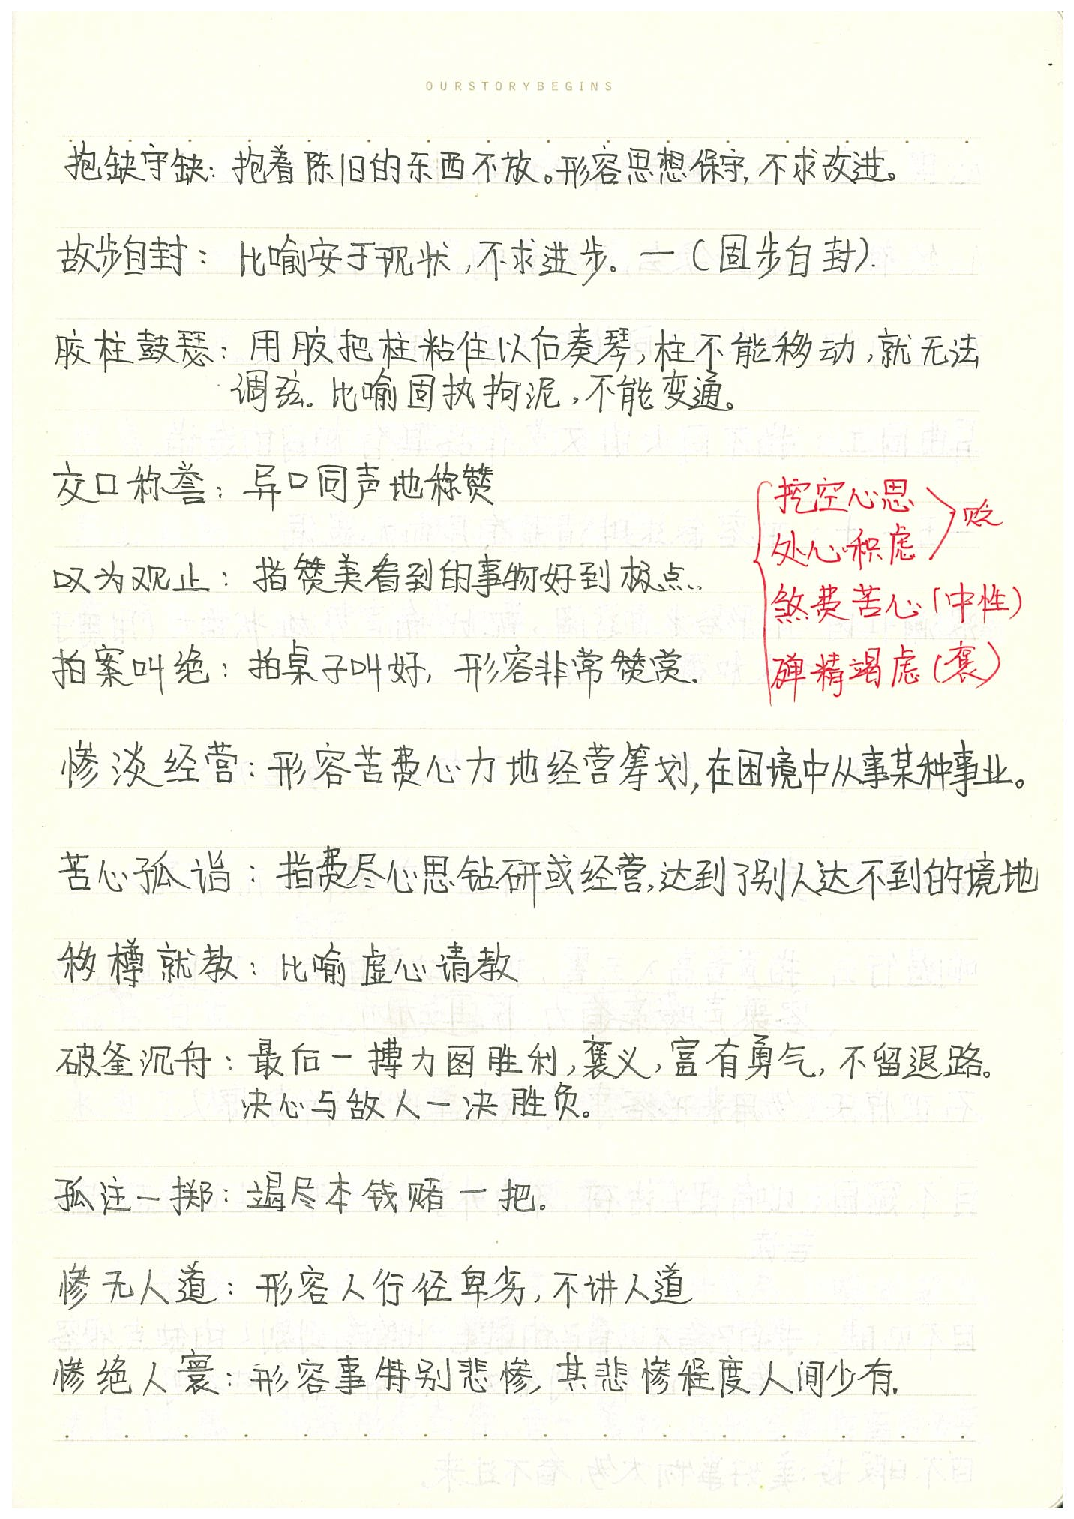 OURSTORYBEGINS
抱缺守缺：抱着陈旧的东西不放。形容思想保守,不求改进。
故步自封：比喻安于现状,不求进步。—（固步自封）.
胶柱鼓瑟：用胶把柱粘住以后奏琴,柱不能移动,就无法
调弦.比喻固执拘泥,不能变通。
交口称誉：异口同声地称赞
叹为观止：指赞美看到的事物好到极点..
拍案叫绝：拍桌子叫好,形容非常赞赏.
挖空心思
处心积虑
贬
煞费苦心（中性）
殚精竭虑（褒）
惨淡经营：形容苦费心力地经营筹划,在困境中从事某种事业。
苦心孤诣：指费尽心思钻研或经营,达到了别人达不到的境地
移樽就教：比喻虚心请教
破釜沉舟：最后一搏力图胜利,褒义,富有勇气,不留退路。
决心与敌人一决胜负。
孤注一掷：竭尽本钱赌一把。
惨无人道：形容人行径卑劣,不讲人道
惨绝人寰：形容事特别悲惨,其悲惨程度人间少有.